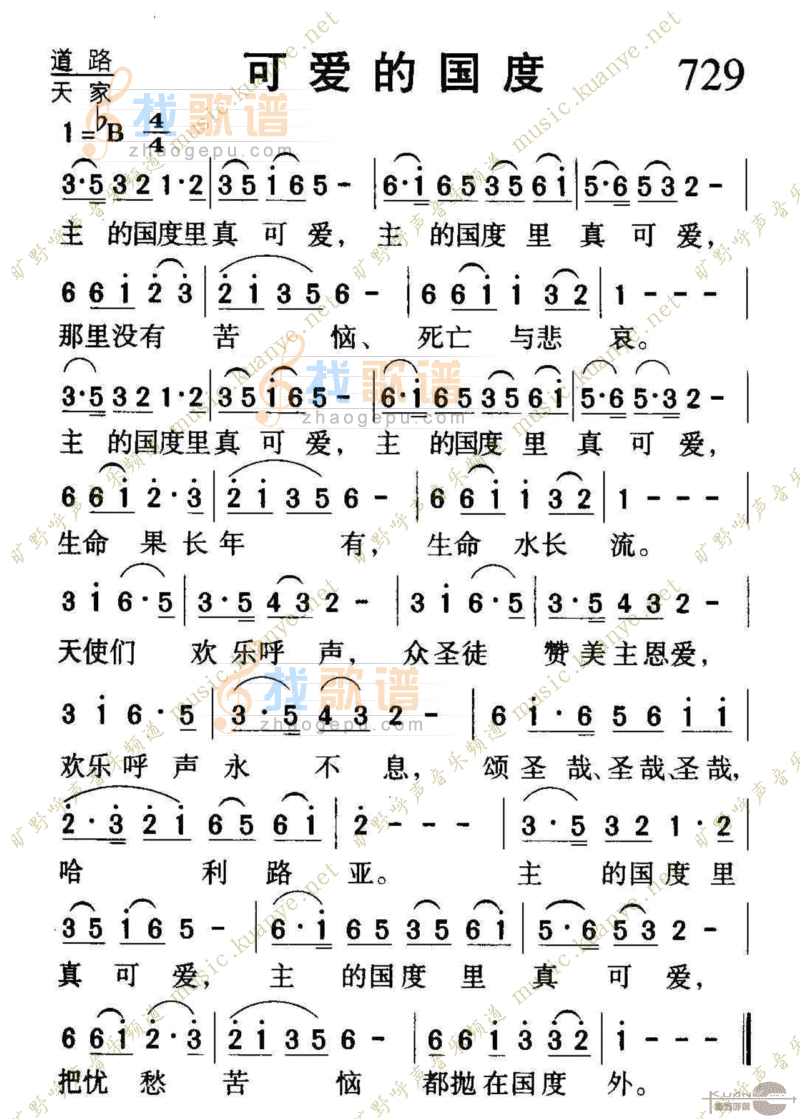 道路 可爱的国度 729
天家
1=♭B 4/4
3·5 3 2 1·2 | 3 5 i 6 5 - | 6·i 6 5 3 5 6 i | 5·6 5 3 2 - |
主 的国度里真可爱, 主 的国度里真可爱,
6 6 i 2 3 | 2 i 3 5 6 - | 6 6 i i 3 2 | 1 - - - |
那里没有苦 恼、死亡与悲 哀。
3·5 3 2 1·2 | 3 5 i 6 5 - | 6·i 6 5 3 5 6 i | 5·6 5·3 2 - |
主 的国度里真可爱, 主 的国度里真可爱,
6 6 i 2·3 | 2 i 3 5 6 - | 6 6 i i 3 2 | 1 - - - |
生命果长年 有, 生命水长 流。
3 i 6·5 | 3·5 4 3 2 - | 3 i 6·5 | 3·5 4 3 2 - |
天使们 欢乐呼声, 众圣徒 赞美主恩爱,
3 i 6·5 | 3·5 4 3 2 - | 6 i·6 5 6 i i |
欢乐呼声永 不 息, 颂圣哉、圣哉、圣哉,
2·3 2 i 6 5 6 i | 2 - - - | 3·5 3 2 1·2 |
哈 利路 亚。 主 的国度里
3 5 i 6 5 - | 6·i 6 5 3 5 6 i | 5·6 5 3 2 - |
真可爱, 主 的国度里真 可爱,
6 6 i 2·2 | 2 i 3 5 6 - | 6 6 i 3 3 2 | i - - - ‖
把忧愁 苦 恼 都抛在国度 外。
找歌谱
zhaogepu.com
找歌谱
zhaogepu.com
找歌谱
zhaogepu.com
旷野呼声音乐频道 music.kuanye.net